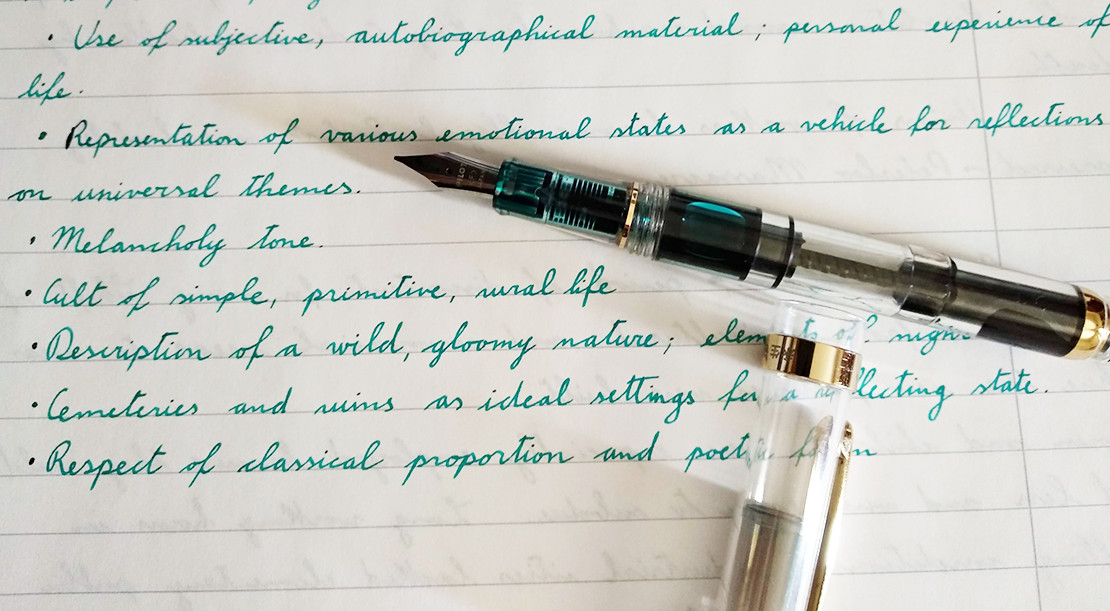 • Use of subjective, autobiographical material; personal experience of
life.
• Representation of various emotional states as a vehicle for reflections
on universal themes.
• Melancholy tone.
• Cult of simple, primitive, rural life
• Description of a wild, gloomy nature; of night
• Cemeteries and ruins as ideal settings for a reflecting state.
• Respect of classical proportion and poetic form